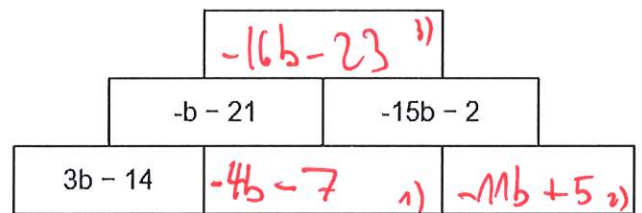 -16b - 23 3)
-b - 21 -15b - 2
3b - 14 -4b - 7 1) -11b + 5 2)